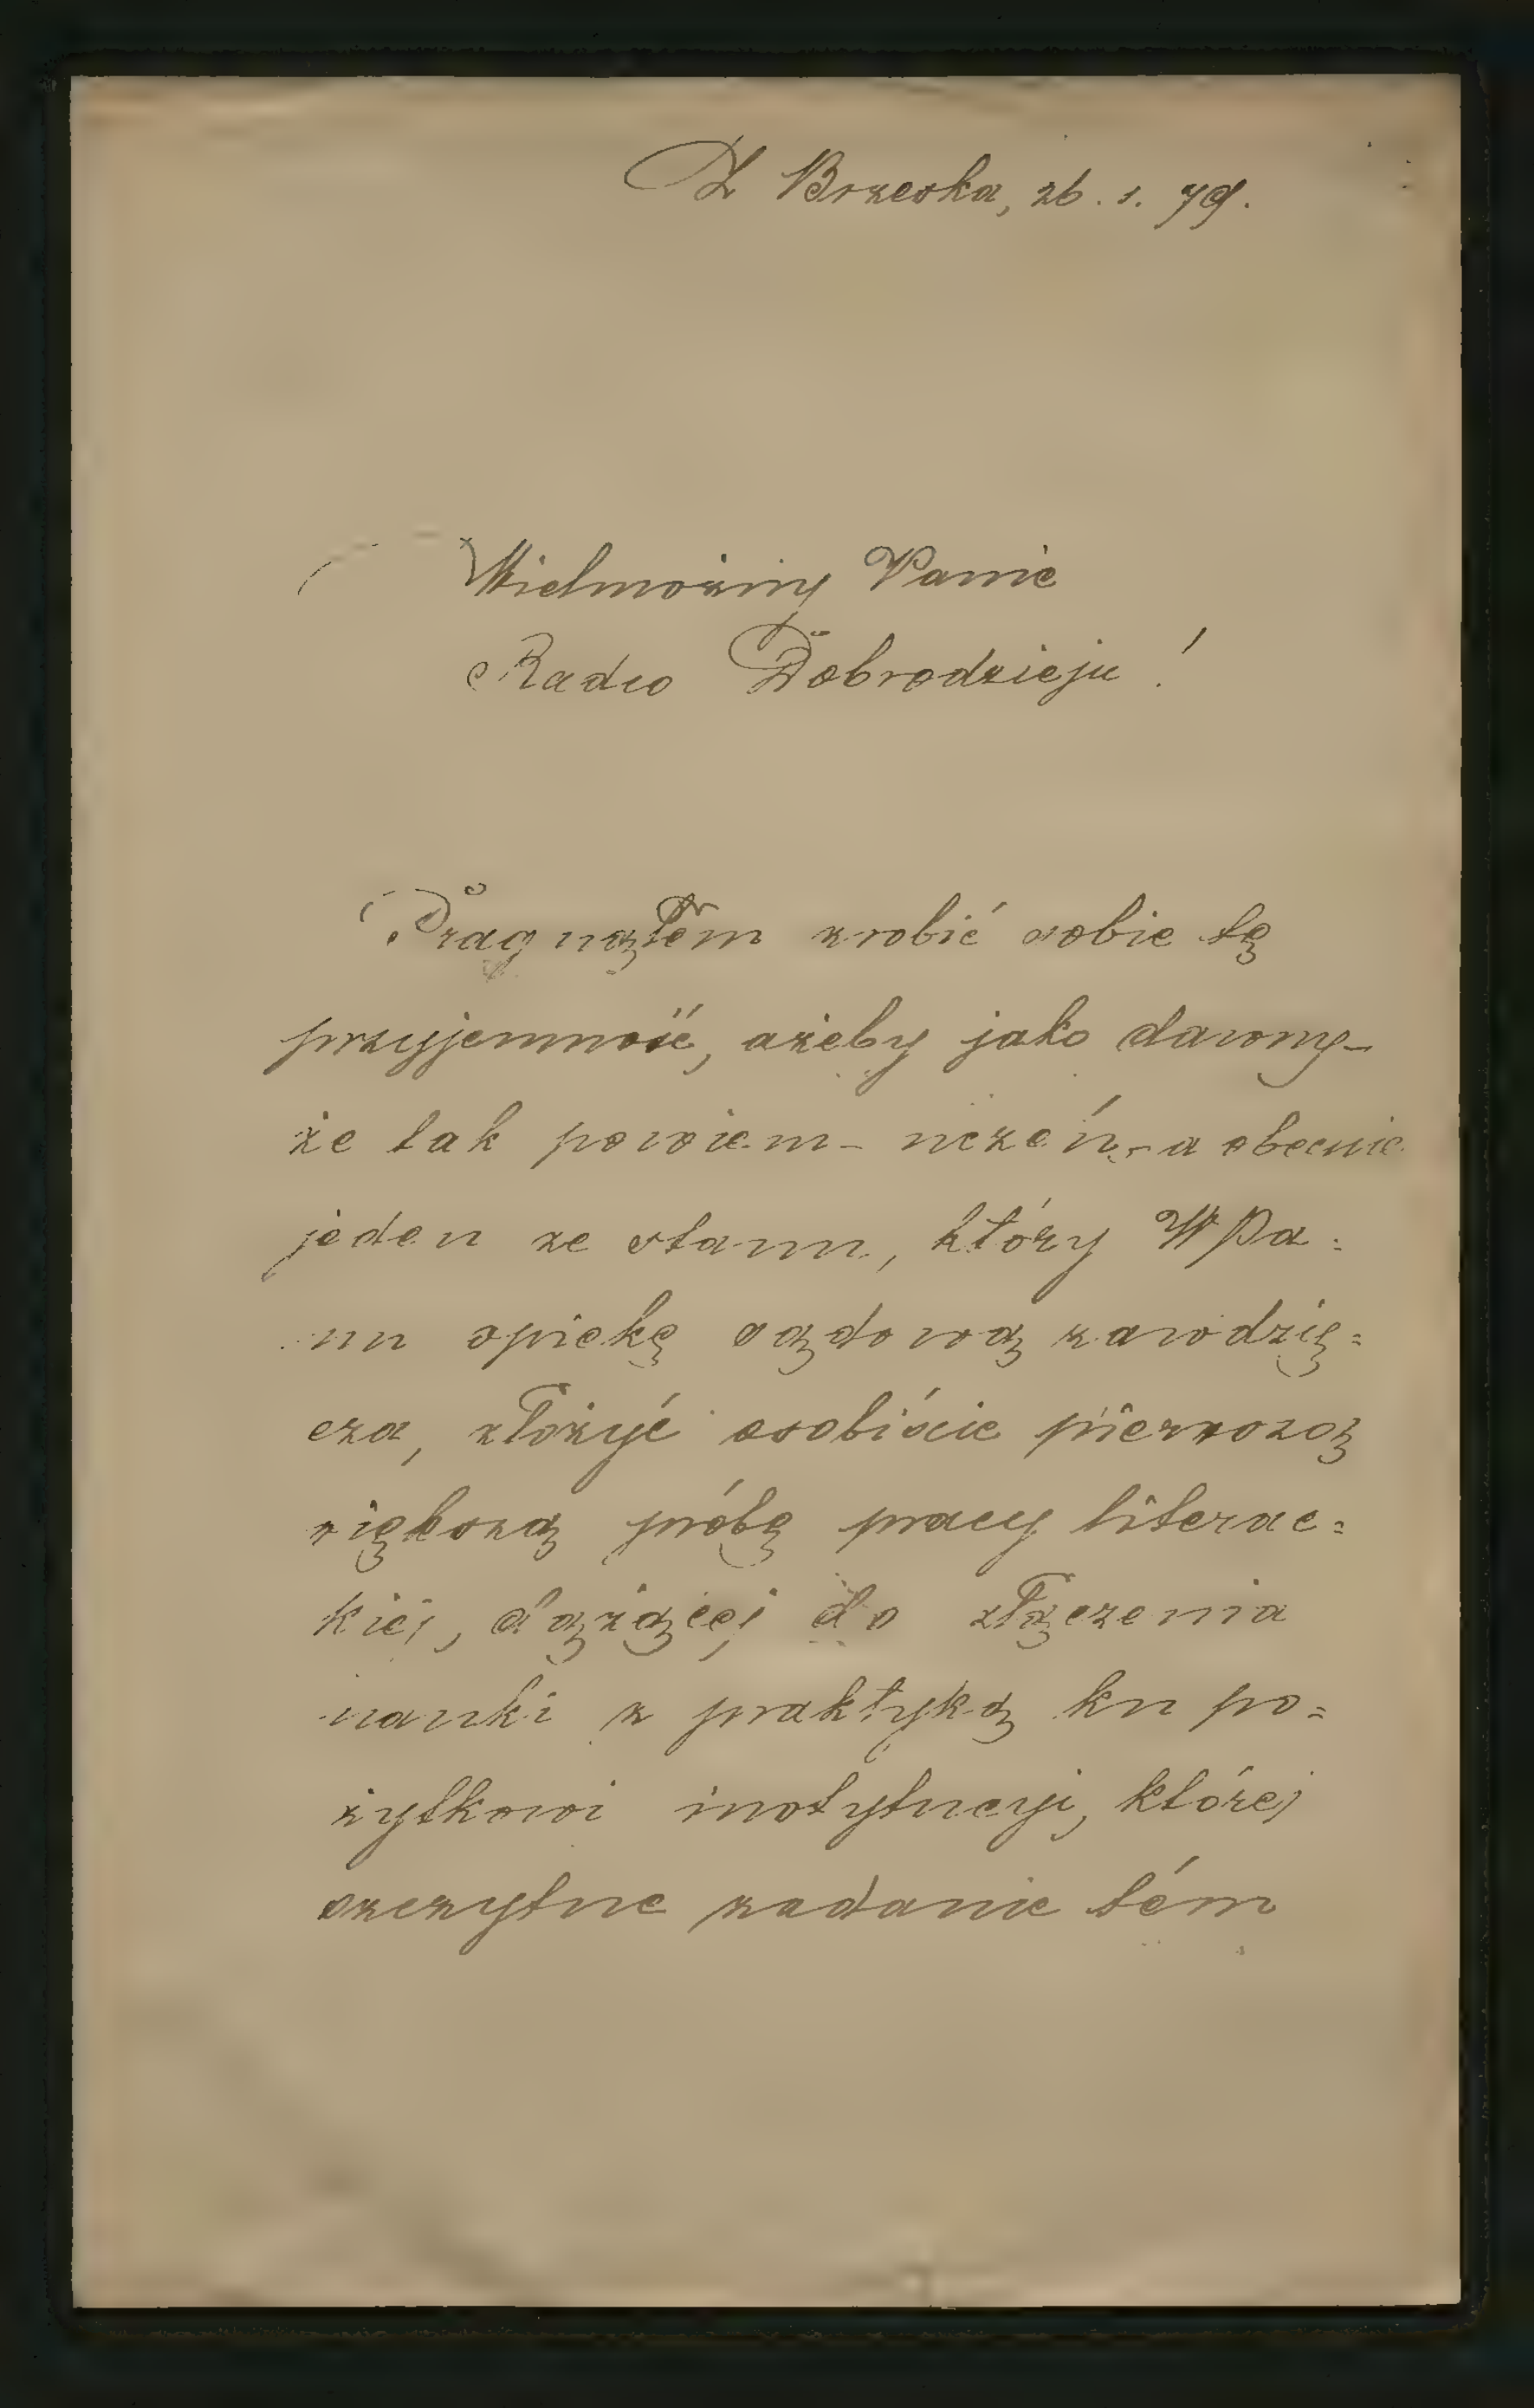 Z Brzeska, 26. 1. 79.
Wielmożny Panie
Radco Dobrodzieju!
Pragnąłem zrobić sobie tę
przyjemność, ażeby jako dawny –
że tak powiem – uczeń, – a obecnie
jeden ze stanu, który WPa=
nu opiekę sądową zawdzię=
cza, złożyć osobiście pierwszą
większą próbę pracy literac=
kiéj, dążącéj do złączenia
nauki z praktyką ku po=
żytkowi instytucyi, któréj
szczytne zadanie tém